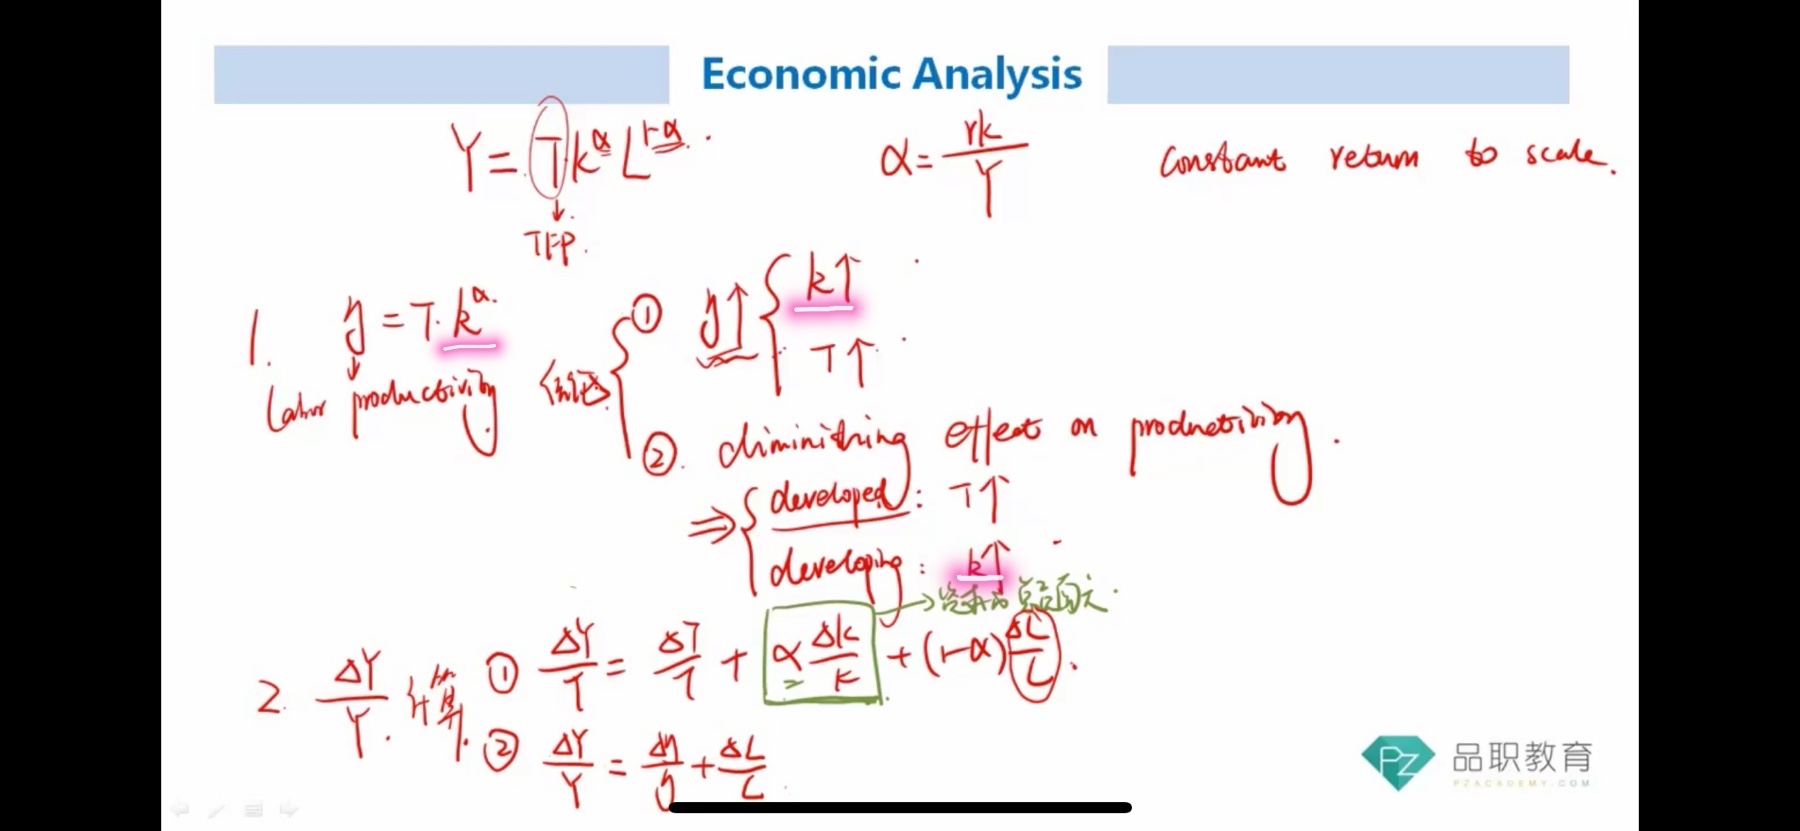 Economic Analysis
Y = T K^α L^(1-α).
α = rK/Y
constant return to scale.
↓
TFP.
1. y = T·k^α.
↓
Labor productivity
结论
① y↑ { k↑
T↑
② diminishing effect on productivity.
⇒ { developed: T↑
developing: k↑
→ 资本的贡献.
2. ΔY/Y 计算.
① ΔY/Y = ΔT/T + α ΔK/K + (1-α) ΔL/L.
② ΔY/Y = Δy/y + ΔL/L
PZ 品职教育
PZACADEMY.COM